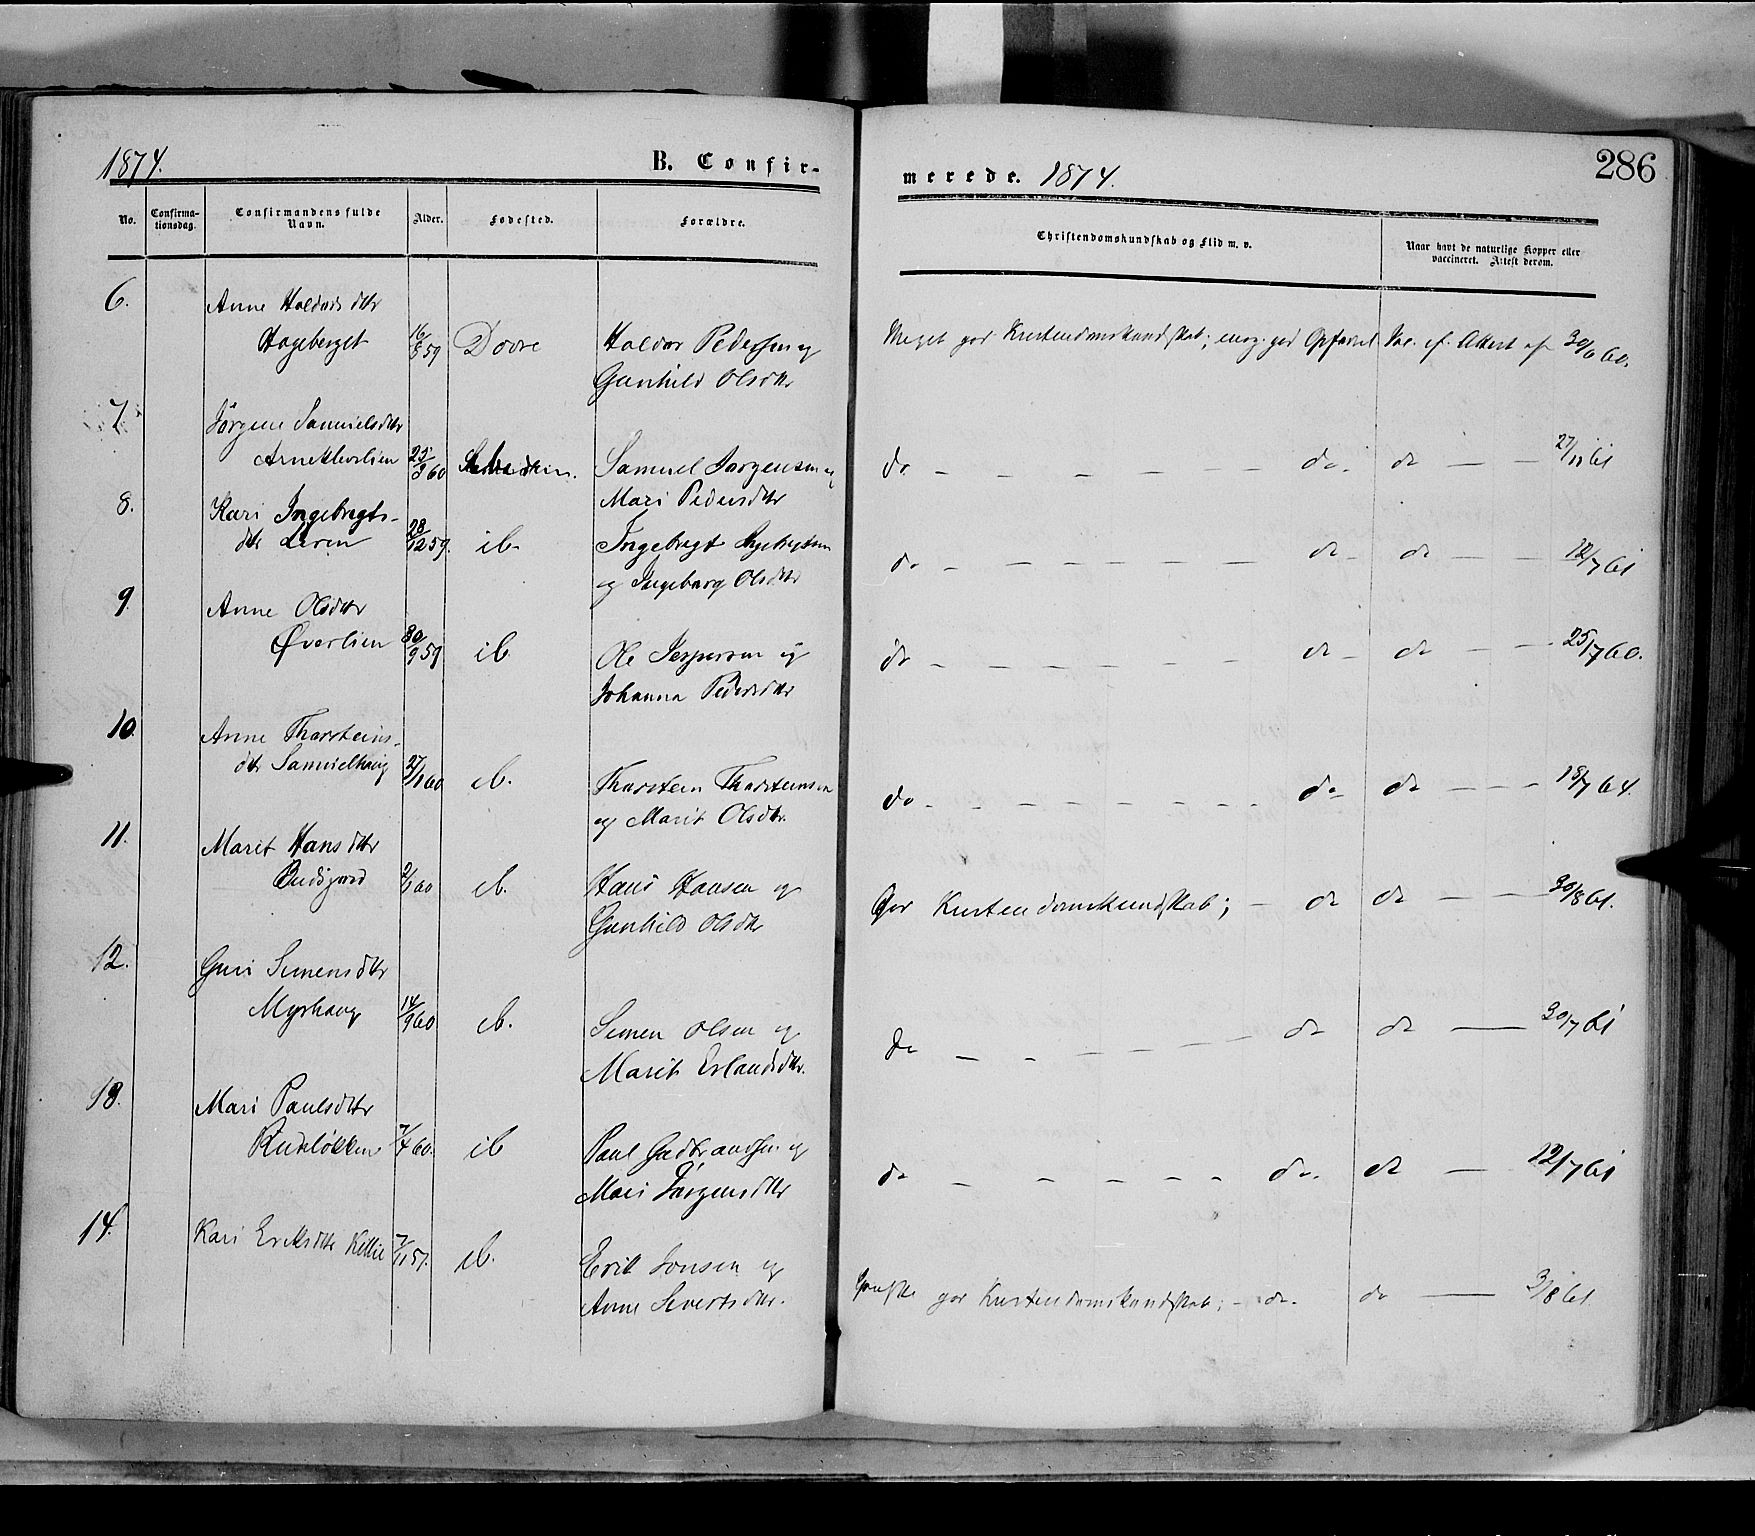 1874.
B. Confir-
merede. 1874.
286
No.
Confirma-
tionsdag.
Confirmandens fulde
Navn.
Alder.
Fødested.
Forældre.
Christendomskundskab og Flid m. v.
Naar havt de naturlige Kopper eller
vaccineret. Attest derom.
6.
Anne Haldorsdttr
Hageberget 16/5 59 Dovre Haldor Pedersen og
Gunhild Olsdttr
Meget god Kristendomskundskab; meg. god Opførsel Vac. ef. Attest af 30/6 60.
7.
Jørgine Samuelsdttr
25/3 60 Samuel Jørgensen og
Mari Pedersdttr
do - - - - - - do. do - - 27/11 61
8.
Kari Ingebregts-
dttr 28/12 59. ib. Ingebregt Ingebregtsen
og Ingeborg Olsdttr
do - - - - - - - - do - do - - 12/7 61
9.
Anne Olsdttr
Øverlien 30/9 59 ib Ole Jespersen og
Johanna Pedersdttr
do - - - - - - - - do - do - - - 25/7 60.
10.
Anne Thorsteins-
dttr Samuelhaug 27/1 60 ib. Thorstein Thorsteinsen
og Marit Olsdttr.
do - - - - - - - - do - do - - - 18/7 64.
11.
Marit Hansdttr
Budsjord 2/1 60 ib. Hans Hansen og
Gunhild Olsdttr
God Kristendomskundskab; - do do - - - 30/8 61.
12.
Guri Simensdttr
Myrhaug 14/9 60 ib. Simen Olsen og
Marit Erlandsdttr.
do - - - - - - do do — 30/7 61
13.
Mari Paulsdttr
Rudiløkken 7/4 60. ib Paul Gudbrandsen og
Mari Jørgensdttr
do - - - - - - do. do - 12/7 61
14.
Kari Eriksdttr 7/11 57. ib. Erik Jonsen og
Anne Sivertsdttr.
Ganske god Kristendomskundskab; - do. do — 3/8 61.